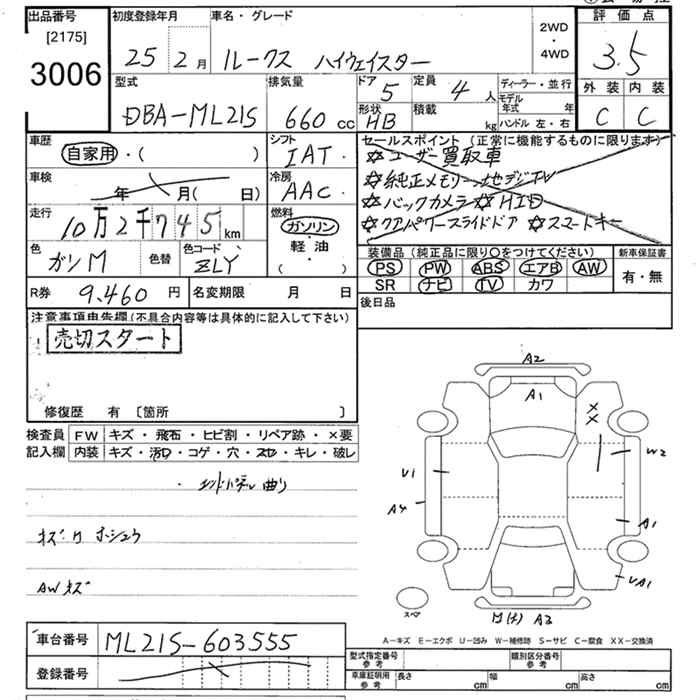 出品番号
[2175]
3006
初度登録年月
25 2 月
車名・グレード
ルークス ハイウェイスター
2WD
・
4WD
評価点
3.5
外装 内装
C C
型式
DBA-ML21S
排気量
660 cc
ドア
5
定員
4 人
形状
HB
積載
kg
ディーラー・並行
モデル年式 年
ハンドル 左・右
車歴
自家用・( )
シフト
IAT
車検
年 月( 日)
冷房
AAC
走行
10万2千745 km
燃料
ガソリン
軽油
( )
色
ガンM
色替
色コード
ZLY
R券 9.460 円
名変期限 月 日
セールスポイント(正常に機能するものに限ります)
☆ユーザー買取車
☆純正メモリー地デジTV
☆バックカメラ☆HID
☆クアパワースライドドア ☆スマートキー
装備品(純正品に限り○をつけてください)
PS PW ABS エアB AW
SR ナビ TV カワ
新車保証書
有・無
後日品
注意事項申告欄(不具合内容等は具体的に記入して下さい)
売切スタート
修復歴 有 〔箇所 〕
検査員 FW キズ・飛石・ヒビ割・リペア跡・×要
記入欄 内装 キズ・汚れ・コゲ・穴・スレ・キレ・破レ
・エンドパネル曲り
キズ サ ホシュウ
AWキズ
A2
A1
××
W2
U1
A4
A1
UA1
スペア
A3
A−キズ E−エクボ U−凹み W−補修跡 S−サビ C−腐食 XX−交換済
車台番号 ML21S-603555
登録番号
型式指定番号
参考
類別区分番号
参考
車庫証明用
参考
長さ cm
幅 cm
高さ cm